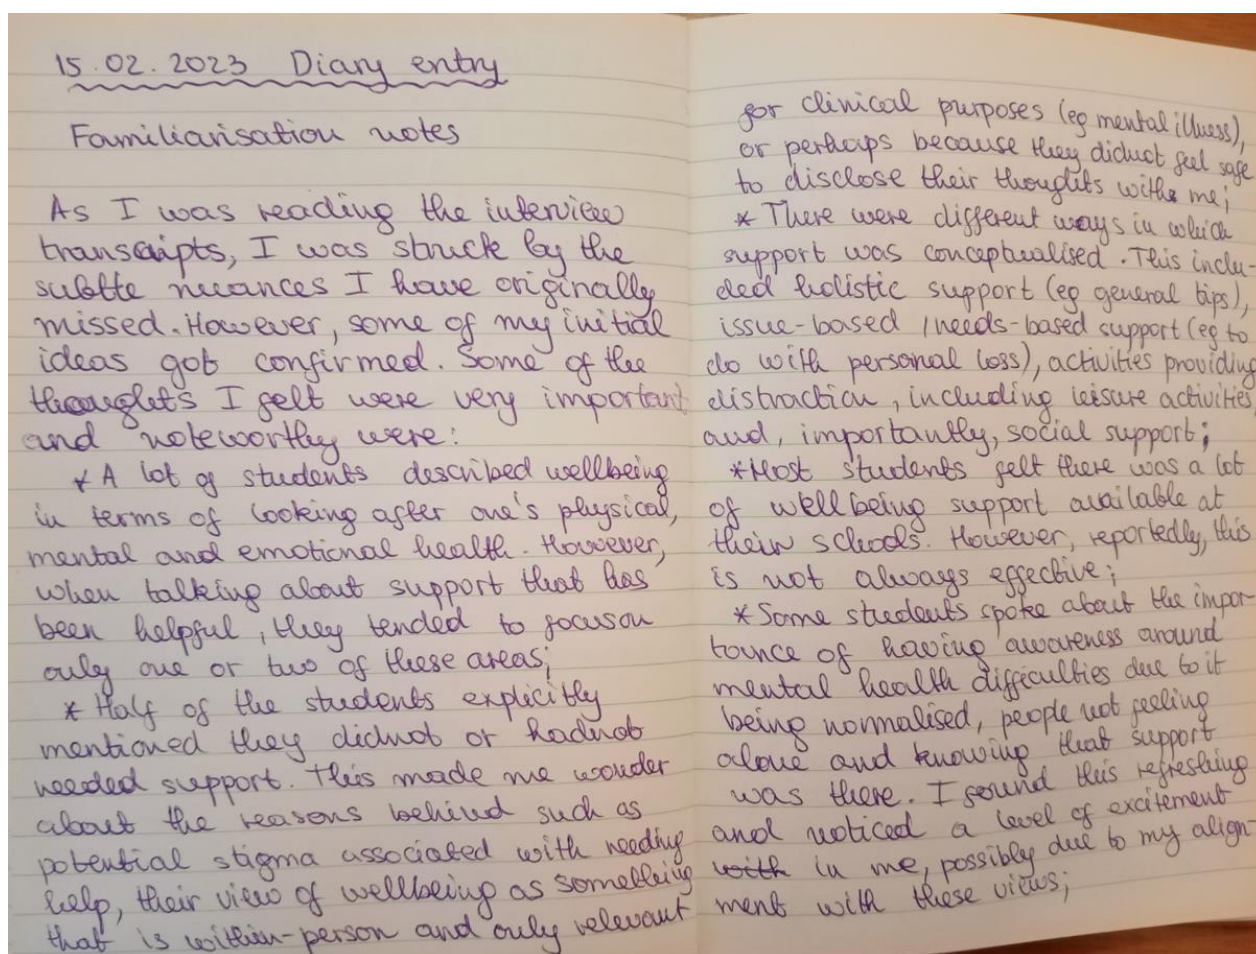 15.02.2023 Diary entry
Familiarisation notes
As I was reading the interview
transcripts, I was struck by the
subtle nuances I have originally
missed. However, some of my initial
ideas got confirmed. Some of the
thoughts I felt were very important
and noteworthy were:
* A lot of students described wellbeing
in terms of looking after one's physical,
mental and emotional health. However,
when talking about support that has
been helpful, they tended to focus on
only one or two of these areas;
* Half of the students explicitly
mentioned they did not or had not
needed support. This made me wonder
about the reasons behind such as
potential stigma associated with needing
help, their view of wellbeing as something
that is within-person and only relevant
for clinical purposes (eg mental illness),
or perhaps because they didnct feel safe
to disclose their thoughts with me;
* There were different ways in which
support was conceptualised. This inclu-
ded holistic support (eg general tips),
issue-based / needs-based support (eg to
do with personal loss), activities providing
distraction, including leisure activities
and, importantly, social support;
* Most students felt there was a lot
of wellbeing support available at
their schools. However, reportedly, this
is not always effective;
* Some students spoke about the impor-
tance of having awareness around
mental health difficulties due to it
being normalised, people not feeling
alone and knowing that support
was there. I found this refreshing
and noticed a level of excitement
with in me, possibly due to my align-
ment with these views;